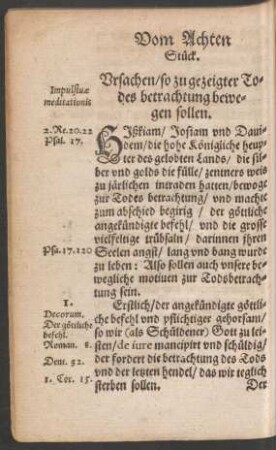 Vom Achten
Stück.
Vrsachen/so zu gezeigter To-
des betrachtung bewe-
gen sollen.
Impulsiuæ
meditationis
2. Re. 20.22
Psal. 17.
HIßkiam/Josiam vnd Daui-
dem/die hohe Königliche heup-
ter des gelobten Lands/die sil-
ber vnd golds die fülle/zentners weis
zu järlichen intraden hatten/bewoge
zur Todes betrachtung/vnd machte
zum abschied begirig/der göttliche
angekündigte befehl/vnd die grosse
vielfeltige trübsaln/darinnen jhren
Seelen angst/lang vnd bang wurde
zu leben: Also sollen auch vnsere be-
wegliche motiuen zur Todsbetrach-
tung sein.
Psa. 17.120
Erstlich/der angekündigte göttli-
che befehl vnd pflichtiger gehorsam/
so wir (als Schüldener) Gott zu lei-
sten/de iure mancipirt vnd schüldig/
der fordert die betrachtung des Tods
vnd der letzten hendel/das wir teglich
sterben sollen.
1.
Decorum.
Der göttliche
befehl.
Roman. 8.
Deut. 32.
1. Cor. 15.
Der